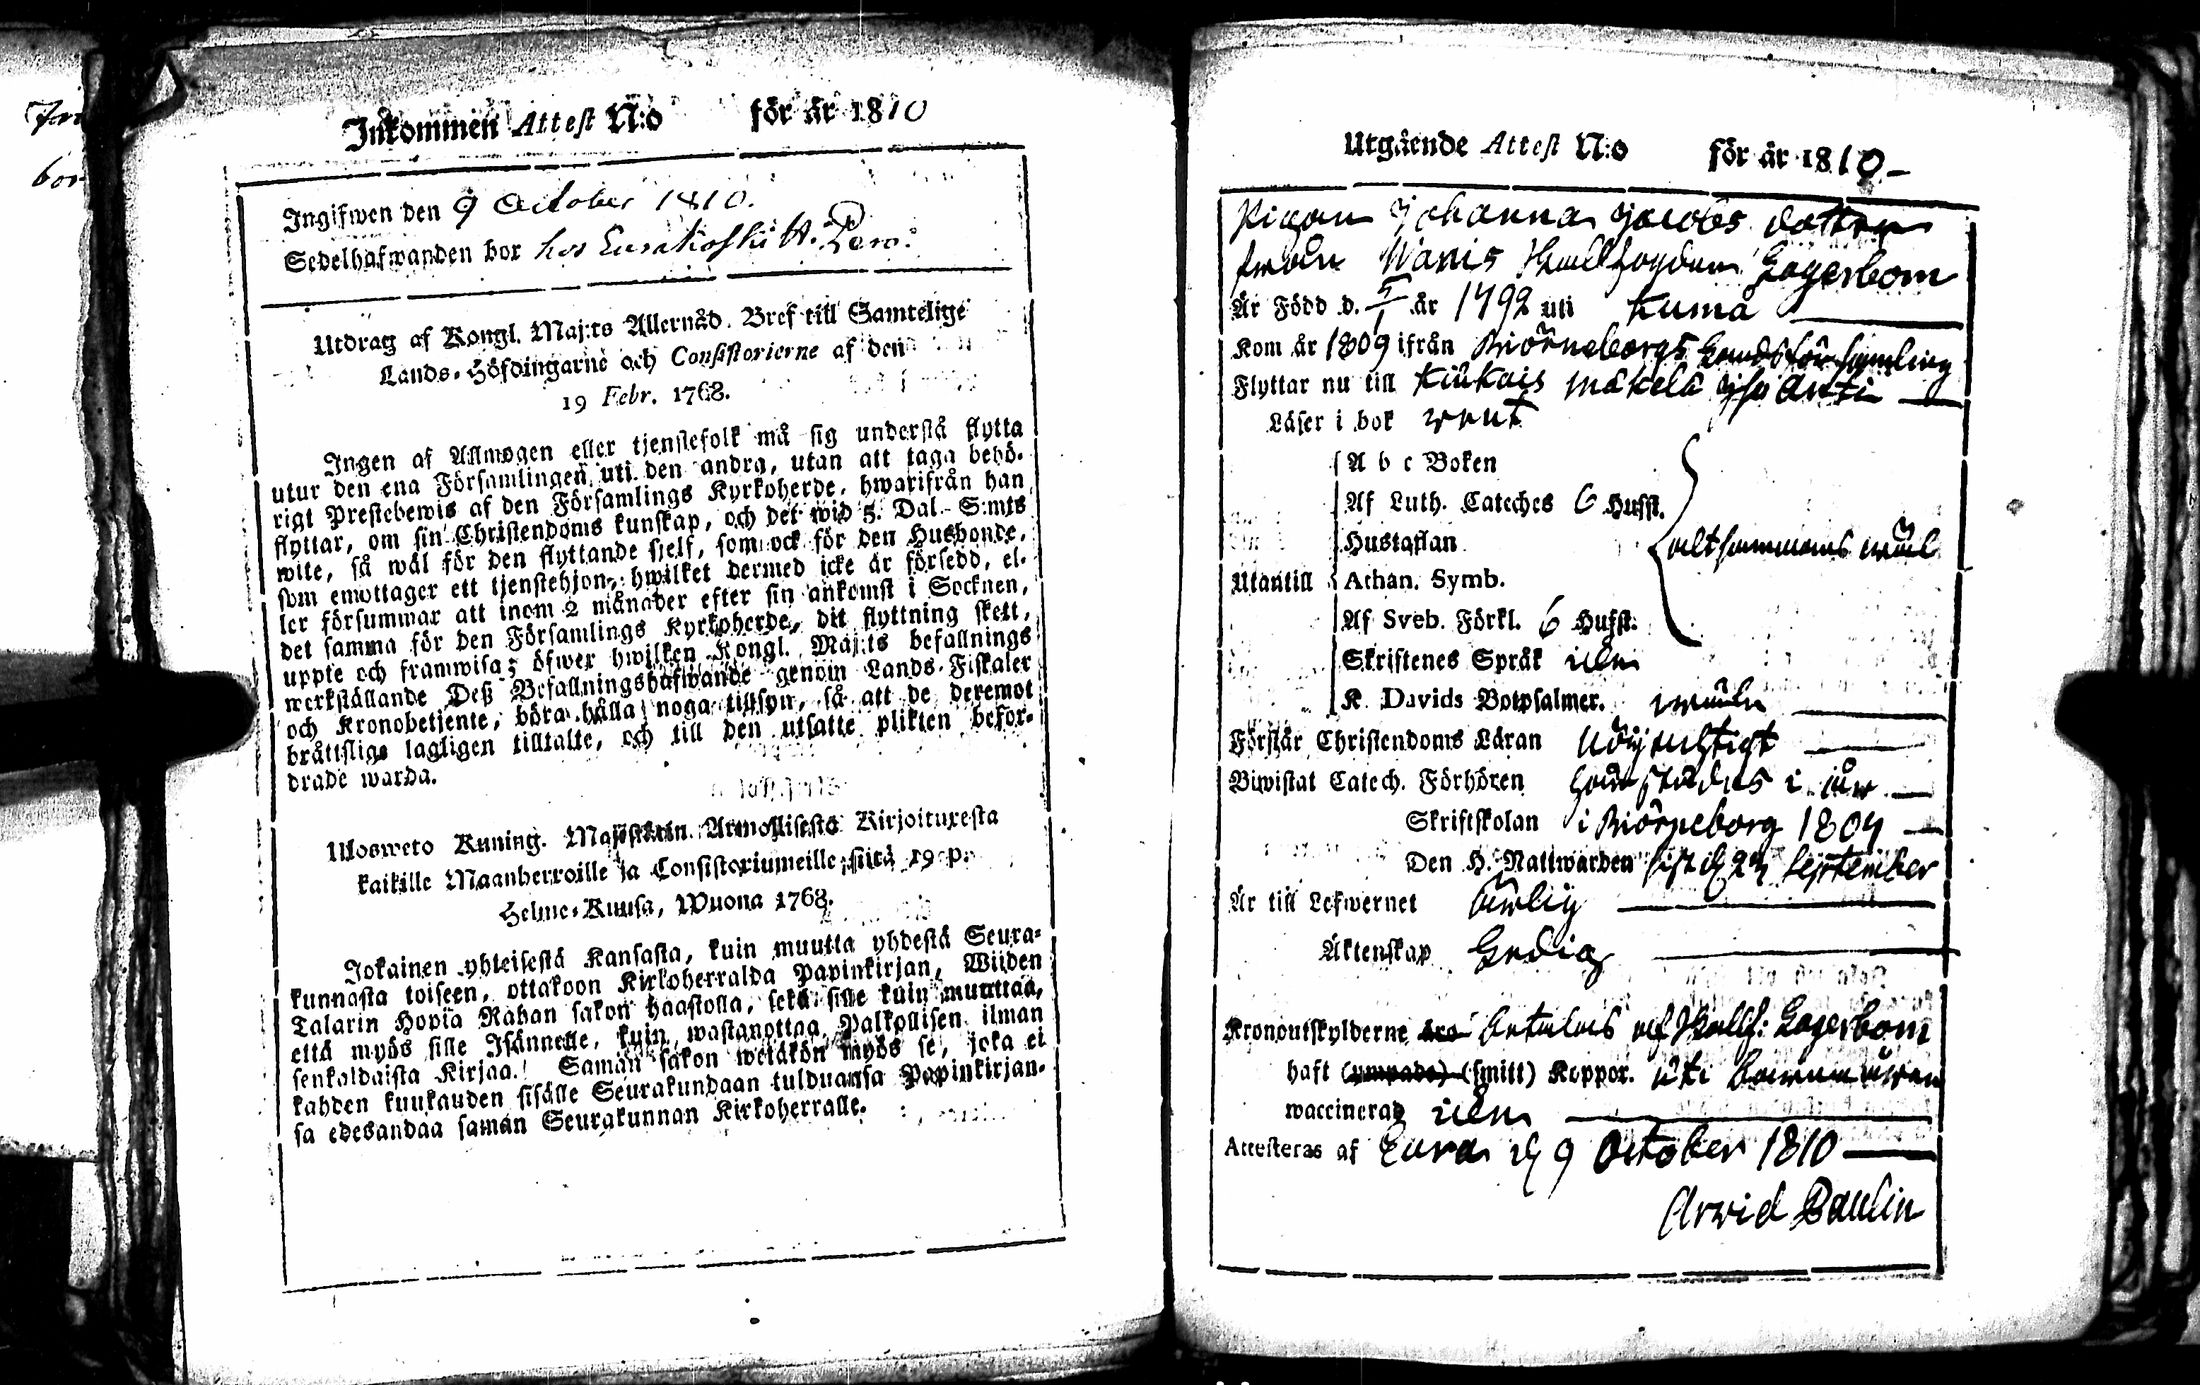 Inkommen Attest N:o för år 1810
Ingifwen den 9 October 1810.
Sedelhafwanden bor hos Eurakoski H. Pero.
Utdrag af Kongl. Maj:ts Allernåd. Bref till Samtelige
Lands-Höfdingarne och Consistorierne af den
19 Febr. 1768.
Ingen af Allmogen eller tjenstefolk må sig understå flytta
utur den ena Församlingen uti den andra, utan att taga behö-
rigt Prestebewis af den Församlings Kyrkoherde, hwarifrån han
flyttar, om sin Christendoms kunskap, och det wid 5. Dal. S:mts
wite, så wäl för den flyttande sjelf, som ock för den Husbonde,
som emottager ett tjenstehjon, hwilket dermed icke är försedd, el-
ler försummar att inom 2 månader efter sin ankomst i Socknen,
det samma för den Församlings Kyrkoherde, dit flyttning skett,
uppte och framwisa; öfwer hwilken Kongl. Maj:ts befallnings
werkställande Deß Befallningshafwande genom Lands-Fiskaler
och Kronobetjente, böra hålla noga tillsyn, så att de deremot
bråttslige lagligen tilltalte, och till den utsatte plikten befor-
drade warda.
Ulosweto Kuning. Majestetin Armollisesta Kirjoituxesta
kaikille Maanherroille ja Consistoriumeille, siitä 19 p.
Helme-Kuusa, Wuona 1768.
Jokainen yhteisestä Kansasta, kuin muutta yhdestä Seura-
kunnasta toiseen, ottakoon Kirkoherralda Papinkirjan, Wiiden
Talarin Hopia Rahan sakon haastolla, sekä sille kuin muuttaa,
että myös sille Isännelle, kuin wastanottaa Palkollisen ilman
senkaldaista Kirjaa. Samän sakon wetäkön myös se, joka ei
kahden kuukauden sisälle Seurakundaan tulduansa Papinkirjan-
sa edesandaa saman Seurakunnan Kirkoherralle.
Utgående Attest N:o för år 1810
Pigan Johanna Jacobs dotter
från Hallfogden Lagerbom
Är Född d. 5/1 år 1792 uti Kumå
Kom år 1809 ifrån Biörneborgs Landsförsamling
Flyttar nu till Kiukais Mäkelä
Läser i bok rent
A b c Boken
Af Luth. Cateches 6 Hufst.
Hustaflan altsammans wäl
Utantill Athan. Symb.
Af Sveb. Förkl. 6 Hufst.
Skriftenes Språk
K. Davids Botpsalmer.
Förstår Christendoms Läran nöjachtigt
Biwistat Catech. Förhören
Skriftskolan i Biörneborg 1809
Den H. Nattwarden sist d. September
Är till Lefwernet ärlig
Äktenskap Ledig
Kronoutskylderne äro betalas af Hallf: Lagerbom
haft (ympade) (smitt) Koppor. uti barna åren
waccinerad
Attesteras af Eura d. 9 October 1810
Arvid Paulin